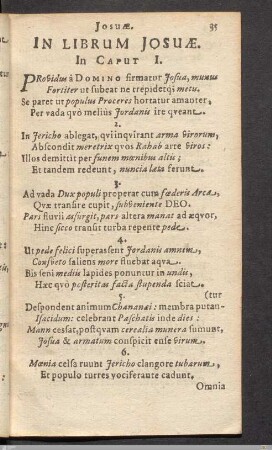 Josuæ. 35
IN LIBRUM JOSUÆ.
In Caput I.
PRovidus à DOMINO firmatur Josua, munus
Fortiter ut subeat ne trepidetqí metu.
Se paret ut populus Proceres hortatur amanter,
Per vada quò melius Jordanis ire qveant.
2.
In Jericho ablegat, qvi inqvirant arma virorum,
Abscondit meretrix qvos Rahab arte viros:
Illos demittit per funem mœnibus altis;
Et tandem redeunt, nuncia læta ferunt.
3.
Ad vada Dux populi properat cum fœderis Arca,
Qvæ transire cupit, subveniente DEO.
Pars fluvii assurgit, pars altera manat ad æqvor,
Hinc sicco transit turba repente pede.
4.
Ut pede felici superassent Jordanis amnem,
Consveto saliens more fluebat aqva.
Bis seni mediis lapides ponuntur in undis,
Hæc qvò posteritas facta stupenda sciat
5. (tur
Despondent animum Chananæi: membra putan-
Isacidum: celebrant Paschatis inde dies:
Mann cessat, postqvam cerealia munera sumunt,
Josua & armatum conspicit ense virum.
6.
Mœnia celsa ruunt Jericho clangore tubarum,
Et populo turres vociferante cadunt.
Omnia